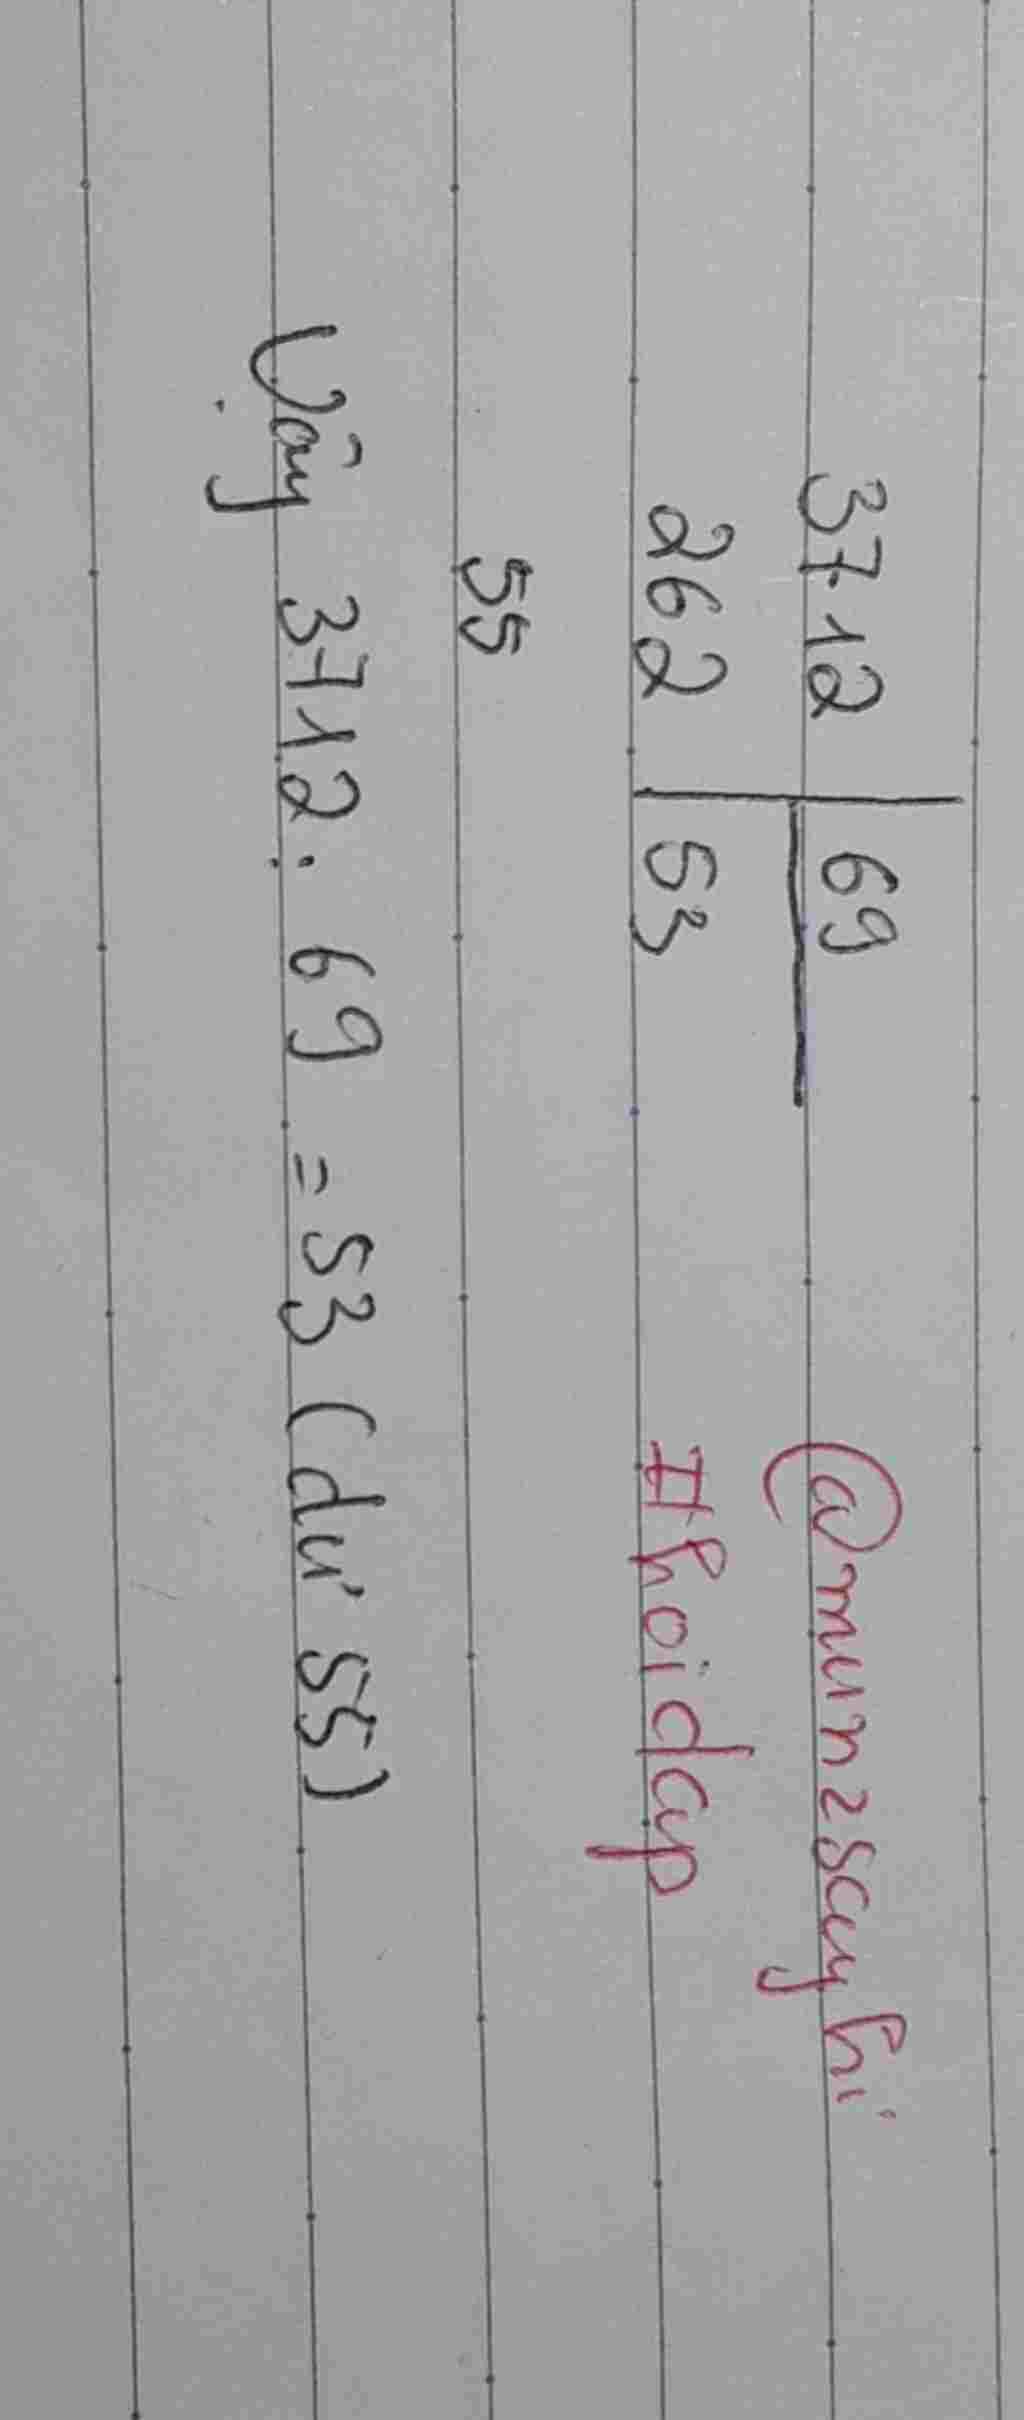 3712 69 @munzscuyhi
262 53 #hoidap
55
Vậy 3712 : 69 = 53 (dư 55)